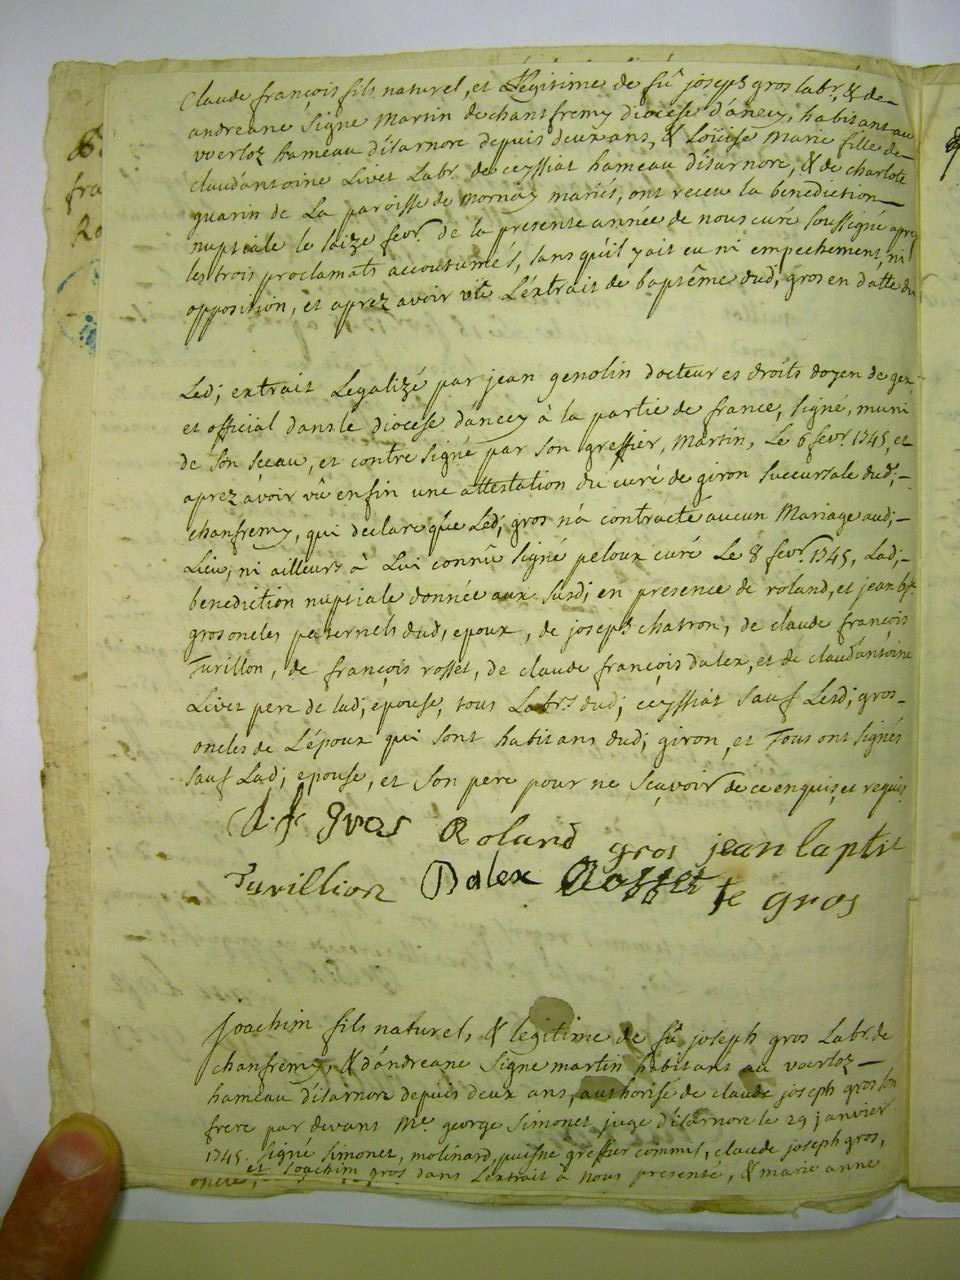 Claude françois fils naturel, et Légitime de fû joseph gros labr. & de
andreane Signe Martin de chanfremy diocese d'anecy, habitant au
voerloz hameau d'isarnore depuis deux ans, & Loüise Marie fille de
claud'antoine Livet Labr. de ceyssiat hameau d'isarnore, & de charlote
guarin de La paroisse de mornay mariés, ont receu la benediction
nuptiale le saize fevr. de la presente année de nous curé soussigné aprez
les trois proclamats accoutumés, sans qu'il y ait eu ni empechement, ni
opposition, et aprez avoir vû L'extrait de baptême dud; gros en datte du
Led; extrait Legalizé par jean genolin docteur es droits doyen de gex
et official dans le diocese d'anecy à la partie de france, signé, muni
de son sceau, et contre signé par son greffier, Martin, Le 6 fevr. 1745, et
aprez avoir vû enfin une attestation du curé de giron succursale dud;
chanfremy, qui declare que Led; gros n'a contracté aucun Mariage aud;
Lieu, ni ailleurs à Lui connû signé peloux curé Le 8 fevr. 1745, Lad;
benediction nuptiale donnée aux susd; en presence de roland, et jean bte.
gros oncles paternels dud; epoux, de joseph chatron, de claude françois
Turillon, de françois rosset, de claude françois dalex, et de claud'antoine
Livet pere de lad; epouse, tous Labrs. dud; ceyssiat sauf Lesd; gros
oncles de L'époux qui sont habitans dud; giron, et Tous ont signés
sauf Lad; epouse, et son pere pour ne sçavoir de ce enquis, et requis
gros Roland gros jean baptit
Turillion Dalex Rosset te gros
Joachim fils naturel, & legitime de fû joseph gros Labr. de
chanfremy, & d'andreane Signe martin habitant au voerloz
hameau d'isarnore depuis deux ans, authorisé de claude joseph gros son
frere par devant Me. george Simonet juge d'isarnore le 29 janvier
1745. signé simonet, molinard, puisne greffier commis, claude joseph gros,
et Joachim gros dans L'extrait à nous presenté, & marie anne